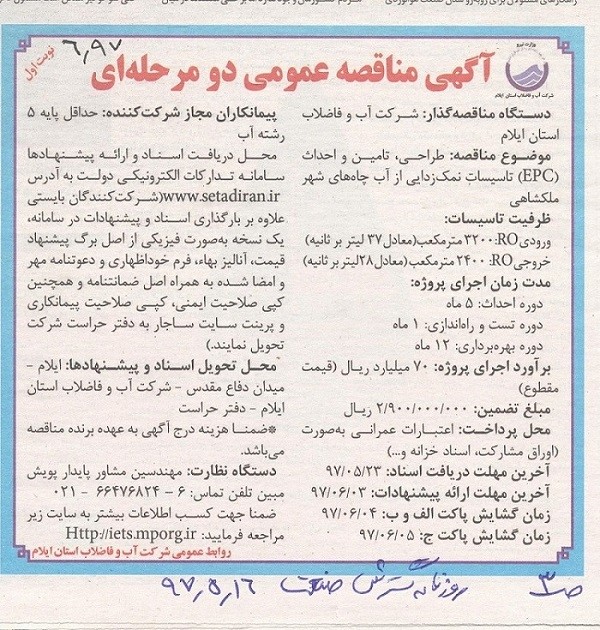 نوبت اول
۶,۹۷
آگهی مناقصه عمومی دو مرحله‌ای
وزارت نیرو
شرکت آب و فاضلاب استان ایلام
دستگاه مناقصه‌گذار: شرکت آب و فاضلاب
استان ایلام
موضوع مناقصه: طراحی، تامین و احداث
(EPC) تاسیسات نمک‌زدایی از آب چاه‌های شهر
ملکشاهی
ظرفیت تاسیسات:
ورودیRO: ۳۲۰۰ مترمکعب(معادل ۳۷ لیتر بر ثانیه)
خروجیRO: ۲۴۰۰ مترمکعب(معادل۲۸لیتر بر ثانیه)
مدت زمان اجرای پروژه:
دوره احداث: ۵ ماه
دوره تست و راه‌اندازی: ۱ ماه
دوره بهره‌برداری: ۱۲ ماه
برآورد اجرای پروژه: ۷۰ میلیارد ریال (قیمت
مقطوع)
مبلغ تضمین: ۲/۹۰۰/۰۰۰/۰۰۰ ریال
محل پرداخت: اعتبارات عمرانی به‌صورت
(اوراق مشارکت، اسناد خزانه و...)
آخرین مهلت دریافت اسناد: ۹۷/۰۵/۲۳
آخرین مهلت ارائه پیشنهادات: ۹۷/۰۶/۰۳
زمان گشایش پاکت الف و ب: ۹۷/۰۶/۰۴
زمان گشایش پاکت ج: ۹۷/۰۶/۰۵
پیمانکاران مجاز شرکت‌کننده: حداقل پایه ۵
رشته آب
محل دریافت اسناد و ارائه پیشنهادها
سامانه تدارکات الکترونیکی دولت به آدرس
www.setadiran.ir(شرکت‌کنندگان بایستی
علاوه بر بارگذاری اسناد و پیشنهادات در سامانه،
یک نسخه به‌صورت فیزیکی از اصل برگ پیشنهاد
قیمت، آنالیز بهاء، فرم خوداظهاری و دعوتنامه مهر
و امضا شده به همراه اصل ضمانتنامه و همچنین
کپی صلاحیت ایمنی، کپی صلاحیت پیمانکاری
و پرینت سایت ساجار به دفتر حراست شرکت
تحویل نمایند.)
محل تحویل اسناد و پیشنهادها: ایلام -
میدان دفاع مقدس - شرکت آب و فاضلاب استان
ایلام - دفتر حراست
*ضمنا هزینه درج آگهی به عهده برنده مناقصه
می‌باشد.
دستگاه نظارت: مهندسین مشاور پایدار پویش
مبین تلفن تماس: ۶ - ۶۶۴۷۶۸۲۴ - ۰۲۱
ضمنا جهت کسب اطلاعات بیشتر به سایت زیر
مراجعه فرمایید: Http://iets.mporg.ir
روابط عمومی شرکت آب و فاضلاب استان ایلام
ص ۳ روزنامه گسترش صنعت ۹۷,۵,۱۶